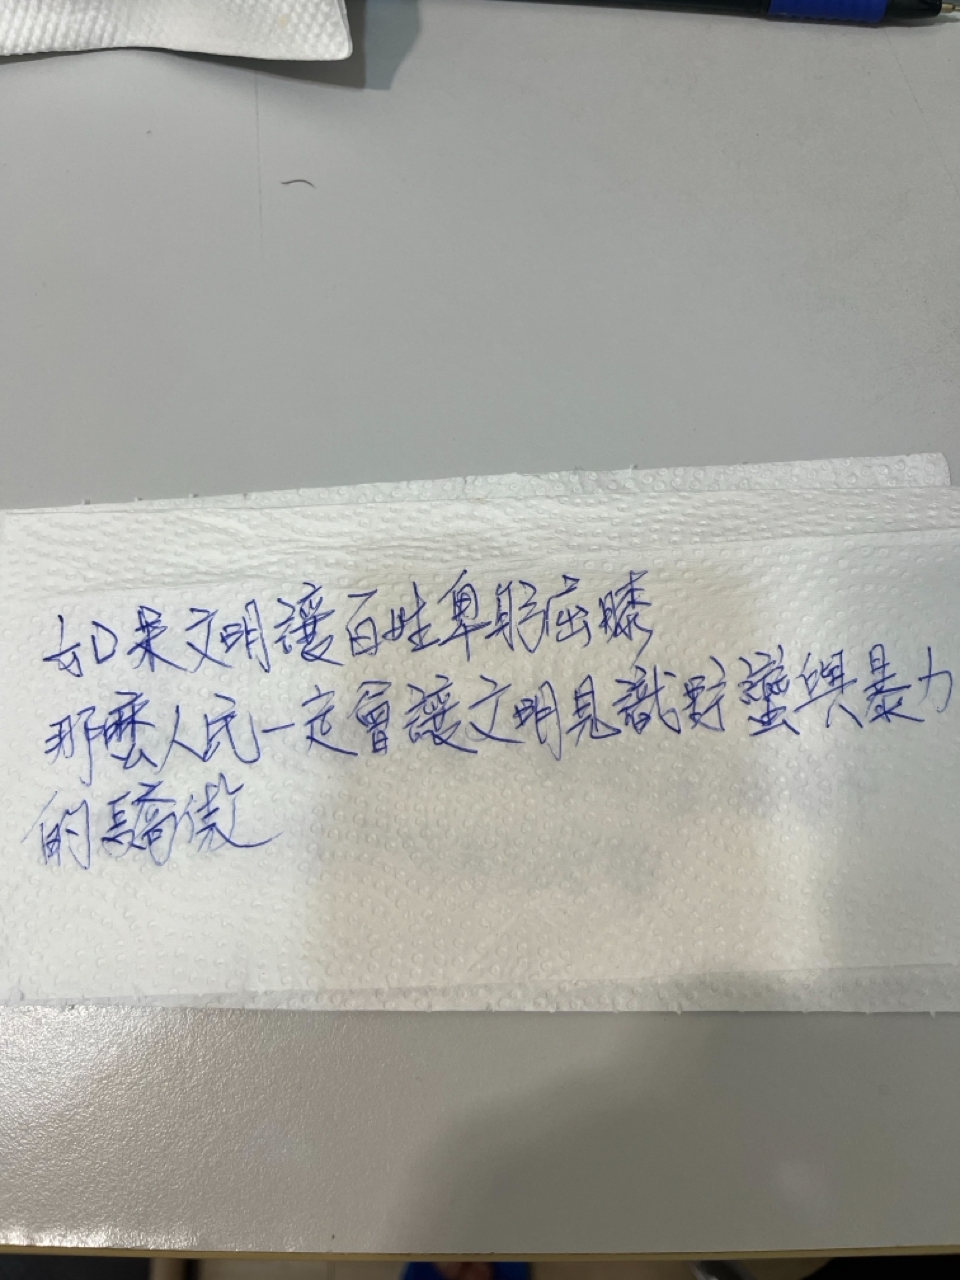 如果文明讓百姓卑躬屈膝
那麼人民一定會讓文明見識野蠻與暴力
的驕傲